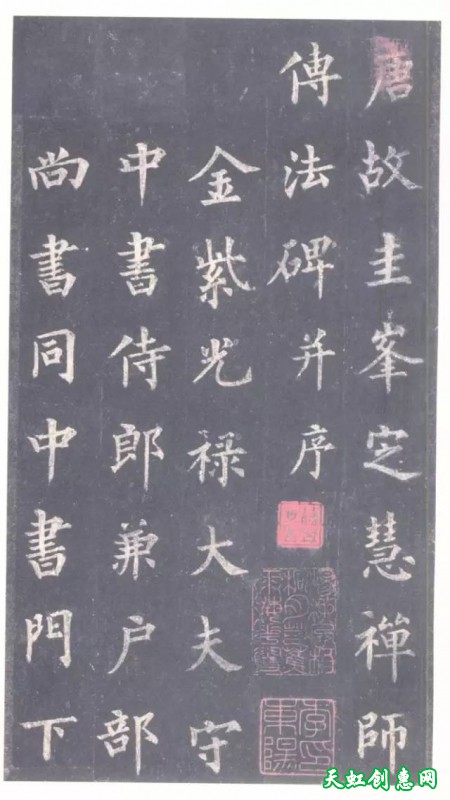 唐故圭峯定慧禪師
傳法碑并序
金紫光祿大夫守
中書侍郎兼户部
尚書同中書門下
天虹创惠网